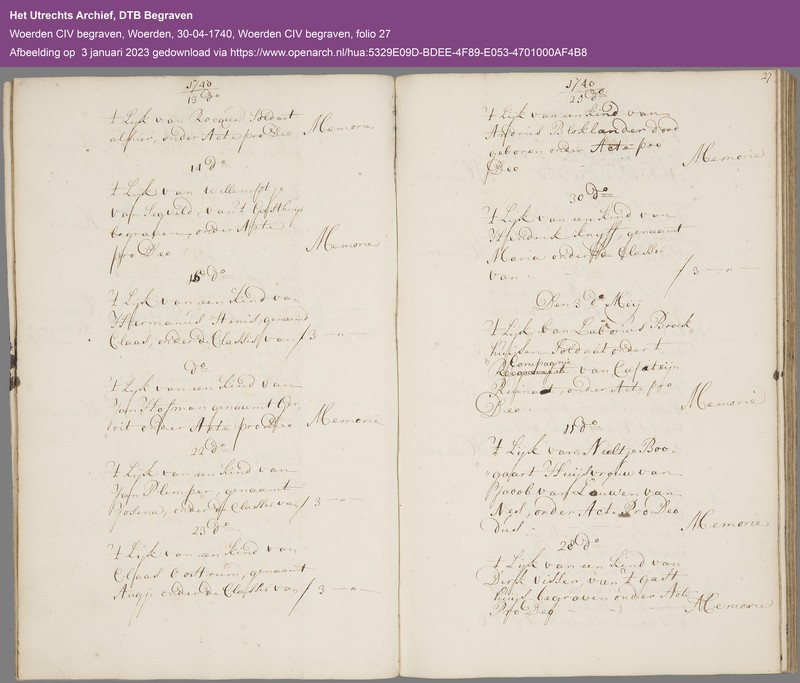 Het Utrechts Archief, DTB Begraven
Woerden CIV begraven, Woerden, 30-04-1740, Woerden CIV begraven, folio 27
Afbeelding op 3 januari 2023 gedownload via https://www.openarch.nl/hua:5329E09D-BDEE-4F89-E053-4701000AF4B8
1740
13 do
't Lijk van Soldaet
onder Acte pro Deo Memorie
14 do
't Lijk van Willempje
van Segveld, van 't Gasthuys
begraven, onder Acte
pro Deo Memorie
do
't Lijk van een kind van
Hermanus genaemd
Claas, onder de Classis van f 3 — " —
do
't Lijk van een kind van
Jan Hofman genaamt Ger-
rit onder Acte pro Deo Memorie
22 do
't Lijk van een kind van
Jan Plemper, genaamt
onder de Classis van f 3 — " —
23 do
't Lijk van een kind van
Claas Oostrum, genaamt
Aagje onder de Classis van f 3 — " —
27
1740
25 do
't Lijk van een kind van
Antonie Bloklander dood
geboren onder Acte pro
Deo Memorie
30 do
't Lijk van een kind van
Hendrik Knyff, genaemt
Maria onder de Classis
van f 3 — " —
Den 3 de Meij
't Lijk van Broek
huijsen Soldaat onder 't
Compagnie
van Capiteijn
onder Acte pro
Deo Memorie
do
't Lijk van Neeltje Boo-
gaart Huijsvrouw van
Jacob van Leuwen van
onder Acte Pro Deo
dus Memorie
do
't Lijk van een kind van
Dirk Visser, van 't Gast
huijs begraven onder Acte
Pro Deo Memorie